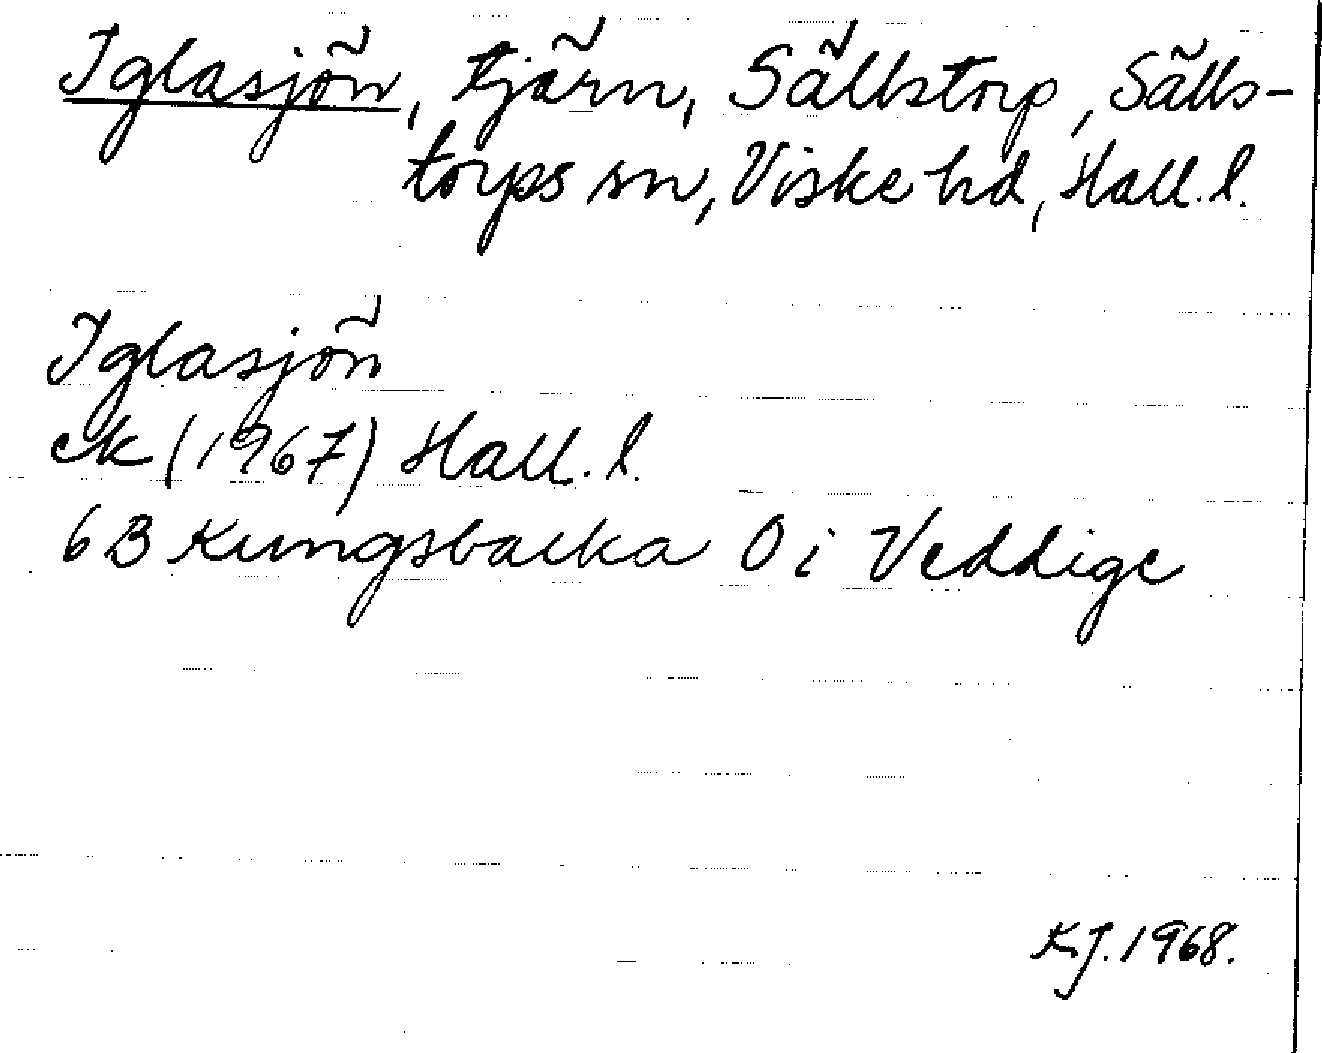 Iglasjön, tjärn, Sällstorp, Sälls-
torps sn, Viske hd, Hall. l.
Iglasjön
ek (1967) Hall. l.
6B Kungsbacka O i Veddige
KJ. 1968.